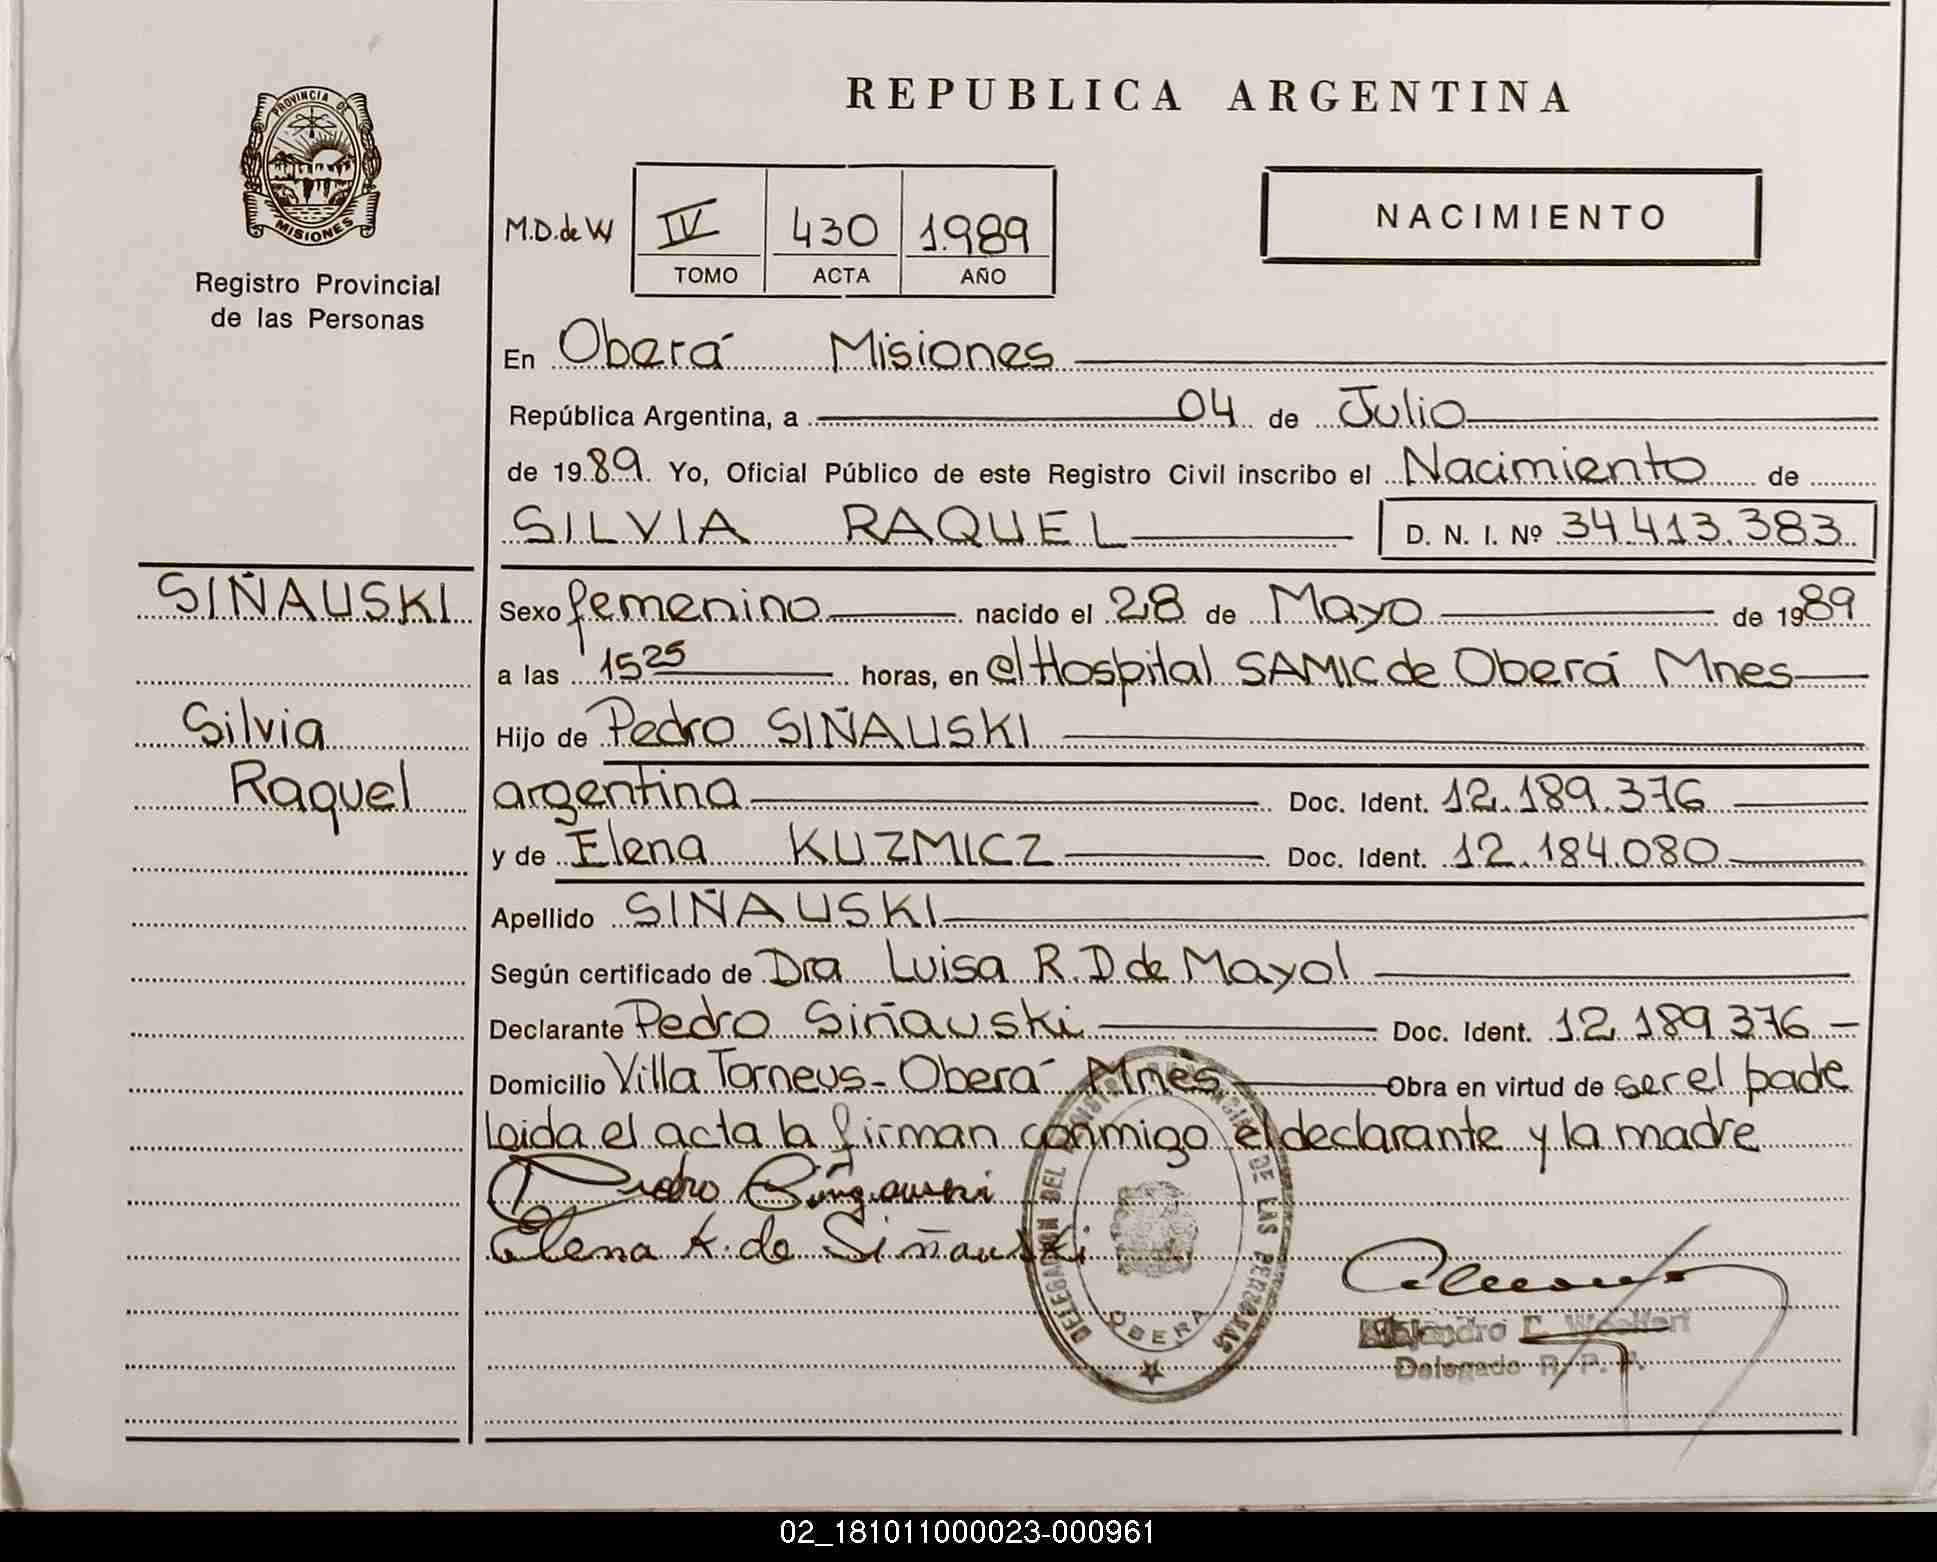 PROVINCIA DE
MISIONES
Registro Provincial
de las Personas
SIÑAUSKI
Silvia
Raquel
REPUBLICA ARGENTINA
M.D. de W
IV 430 1.989
TOMO ACTA AÑO
NACIMIENTO
En Oberá Misiones
República Argentina, a 04 de Julio
de 1989. Yo, Oficial Público de este Registro Civil inscribo el Nacimiento de
SILVIA RAQUEL D. N. I. Nº 34.413.383
Sexo femenino nacido el 28 de Mayo de 1989
a las 15 25 horas, en el Hospital SAMIC de Oberá Mnes
Hijo de Pedro SIÑAUSKI
argentina Doc. Ident. 12.189.376
y de Elena KUZMICZ Doc. Ident. 12.184.080
Apellido SIÑAUSKI
Según certificado de Dra Luisa R. D. de Mayol
Declarante Pedro Siñauski Doc. Ident. 12.189.376
Domicilio Villa Torneus - Oberá Mnes Obra en virtud de ser el padre
Leida el acta la firman conmigo el declarante y la madre
Pedro Siñauski
Elena K. de Siñauski
DELEGACION DEL REGISTRO PROVINCIAL DE LAS PERSONAS
OBERA
Alejandro
Delegado R. P. P.
02_181011000023-000961